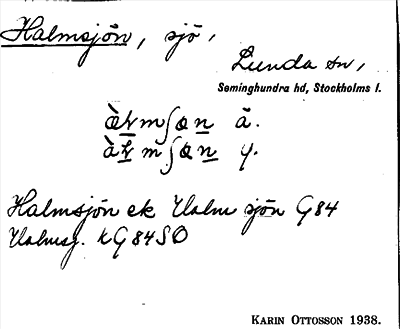 Halmsjön, sjö,
Lunda sn,
Seminghundra hd, Stockholms l.
ä.
y.
Halmsjön ek Valm sjön G84
Valmsj. kG84SO
KARIN OTTOSSON 1938.